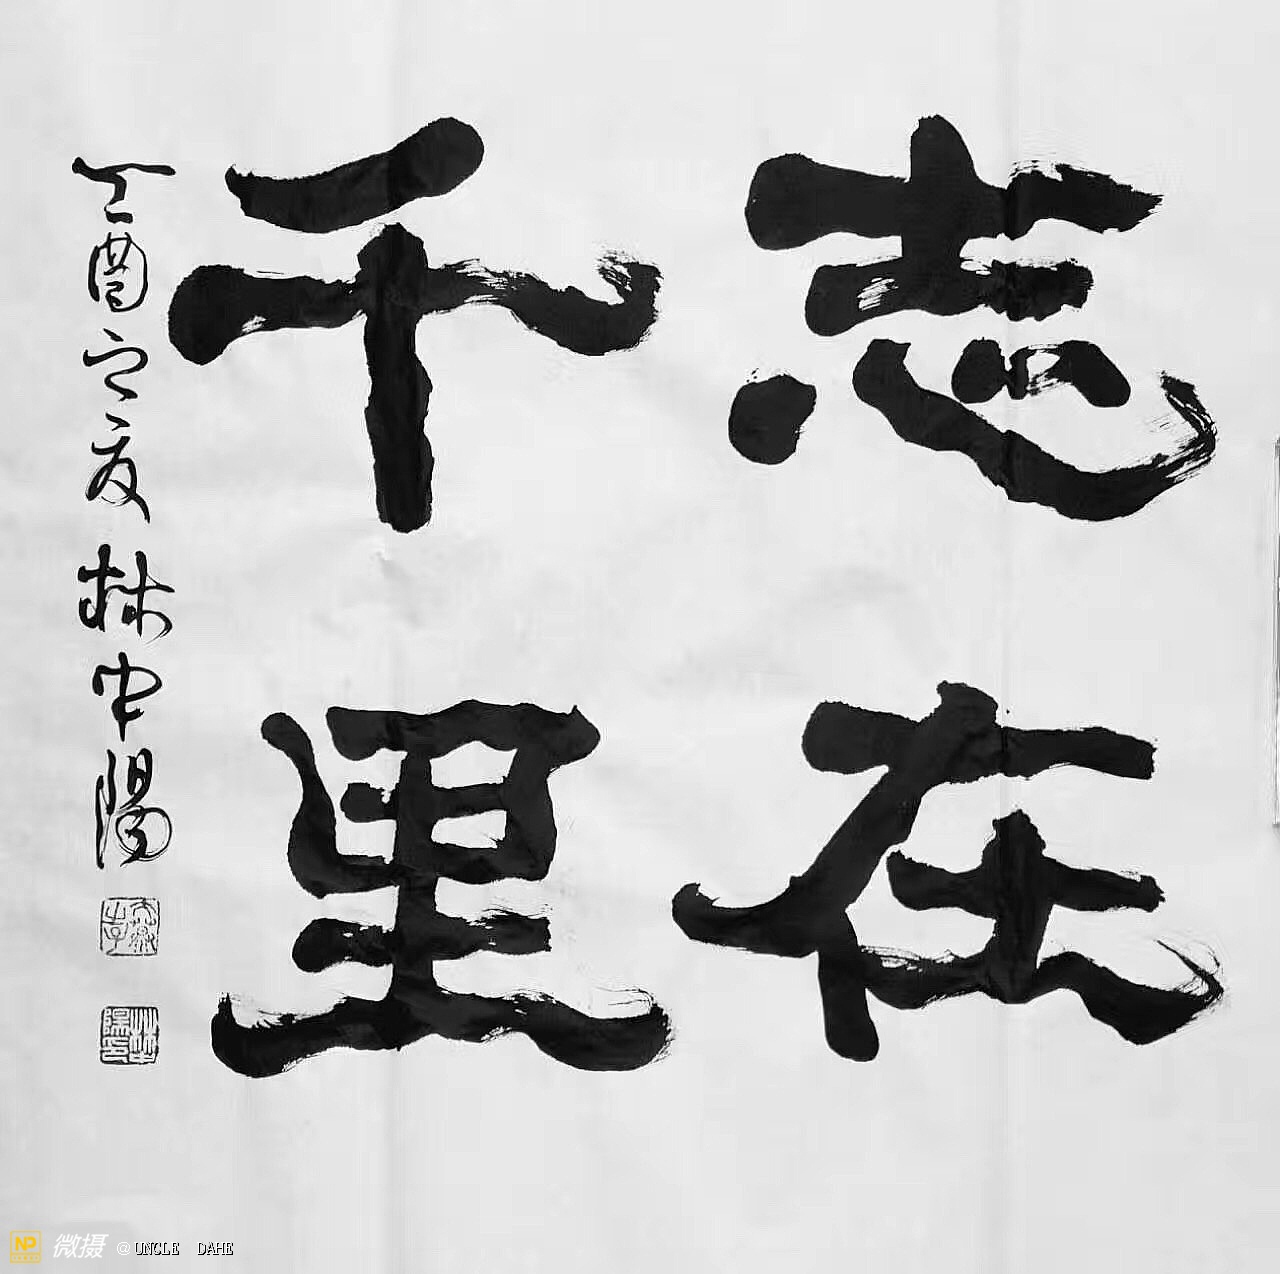 志在
千里
丁酉之夏林中阳
NP 微摄 @UNCLE DAHE